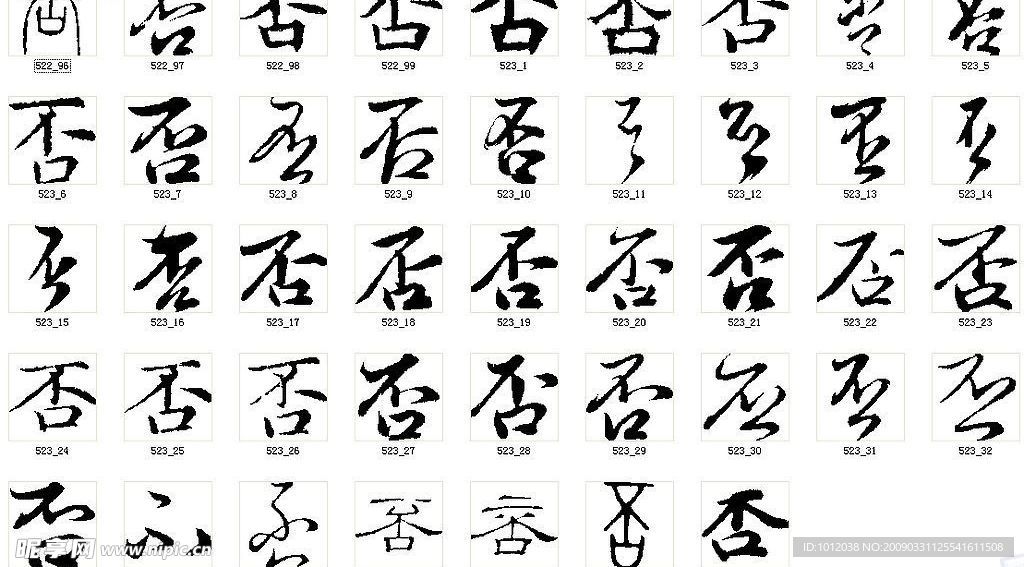 否 否 否 否 否 否 否 否 否
522_96 522_97 522_98 522_99 523_1 523_2 523_3 523_4 523_5
否 否 否 否 否 否 否 否 否
523_6 523_7 523_8 523_9 523_10 523_11 523_12 523_13 523_14
否 否 否 否 否 否 否 否 否
523_15 523_16 523_17 523_18 523_19 523_20 523_21 523_22 523_23
否 否 否 否 否 否 否 否 否
523_24 523_25 523_26 523_27 523_28 523_29 523_30 523_31 523_32
否 否 否 否 否 否 否
昵享网 www.nipic.cn
ID:1012038 NO:20090331125541611508